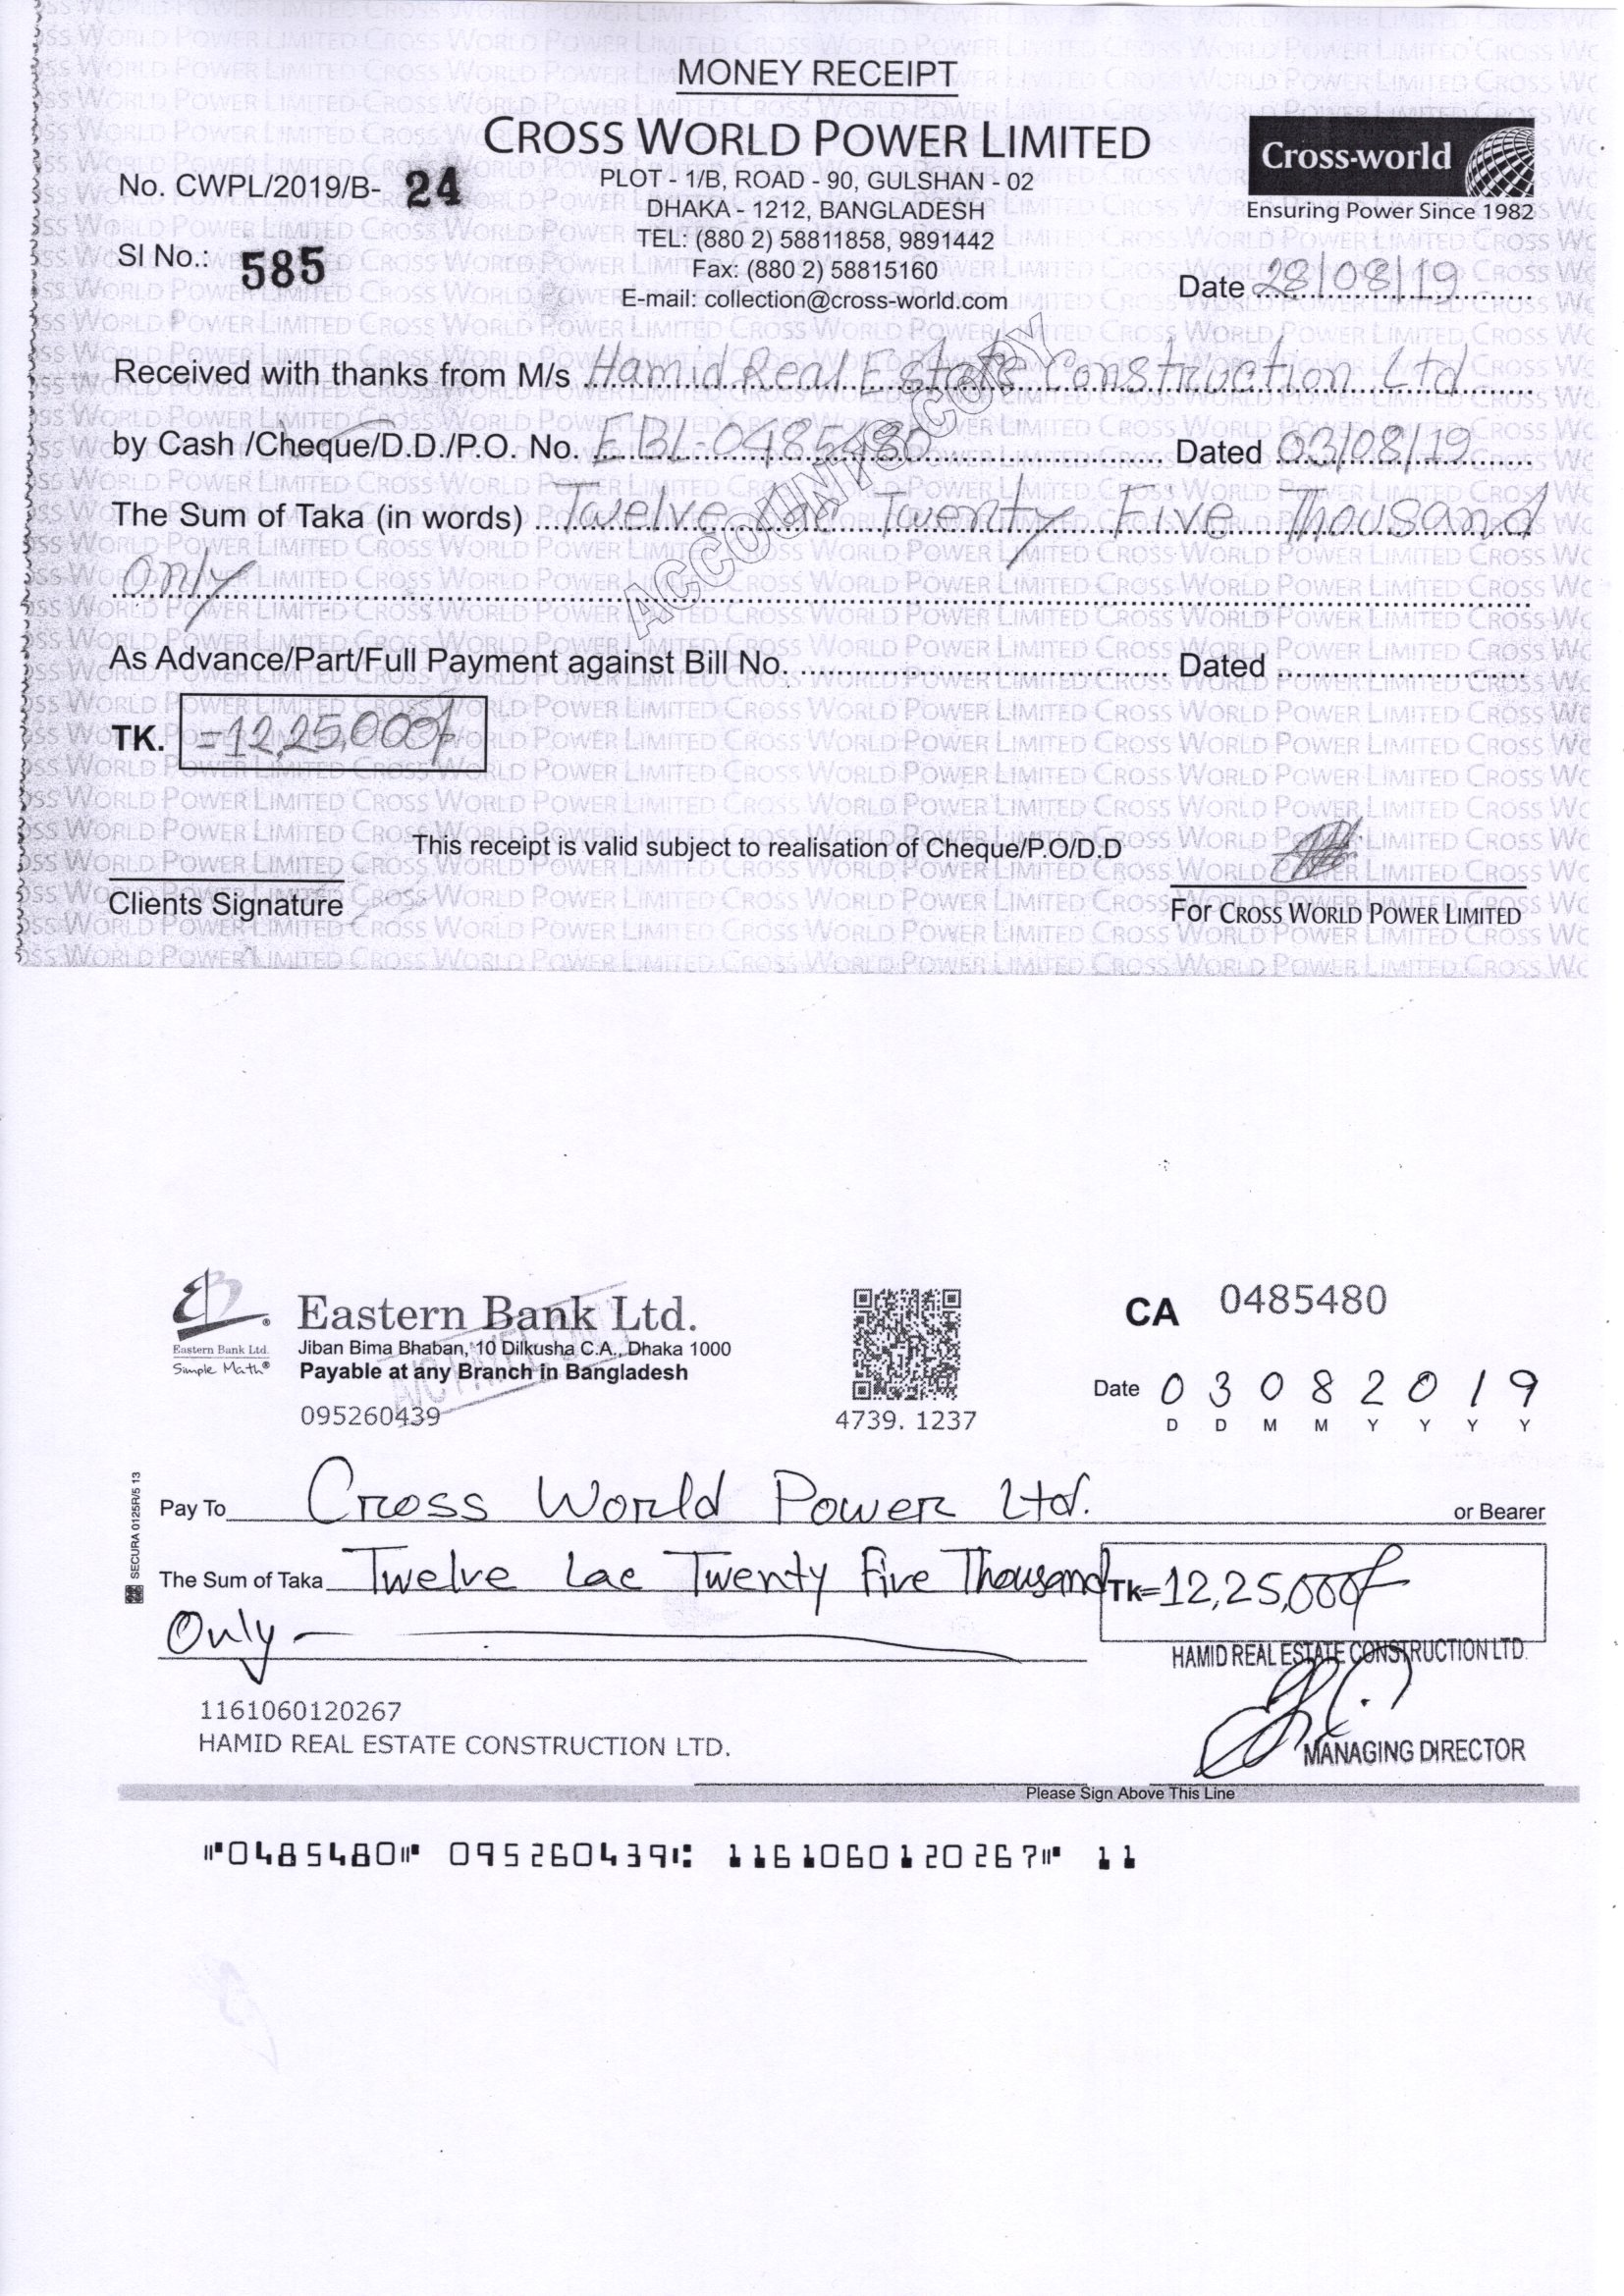 MONEY RECEIPT
CROSS WORLD POWER LIMITED
Cross-world
Ensuring Power Since 1982
No. CWPL/2019/B- 24
PLOT - 1/B, ROAD - 90, GULSHAN - 02
DHAKA - 1212, BANGLADESH
SI No.: 585
TEL: (880 2) 58811858, 9891442
Fax: (880 2) 58815160
E-mail: collection@cross-world.com
Date 28/08/19
Received with thanks from M/s Hamid Real Estate Construction Ltd
by Cash /Cheque/D.D./P.O. No. EBL-0485480 Dated 03/08/19
The Sum of Taka (in words) Twelve Twenty Five Thousand
only
ACCOUNTS COPY
As Advance/Part/Full Payment against Bill No. Dated
TK. =12,25,000/-
This receipt is valid subject to realisation of Cheque/P.O/D.D
Clients Signature
For CROSS WORLD POWER LIMITED
Eastern Bank Ltd.
Simple Math®
Eastern Bank Ltd.
Jiban Bima Bhaban, 10 Dilkusha C.A., Dhaka 1000
Payable at any Branch in Bangladesh
095260439
A/C PAYEE ONLY
4739. 1237
CA 0485480
Date 0 3 0 8 2 0 1 9
D D M M Y Y Y Y
SECURA 0125R/5 13
Pay To Cross World Power Ltd. or Bearer
The Sum of Taka Twelve Lac Twenty Five Thousand Tk=12,25,000/-
Only
HAMID REAL ESTATE CONSTRUCTION LTD.
1161060120267
HAMID REAL ESTATE CONSTRUCTION LTD.
MANAGING DIRECTOR
Please Sign Above This Line
⑈0485480⑈ 095260439⑆ 1161060120267⑈ 11